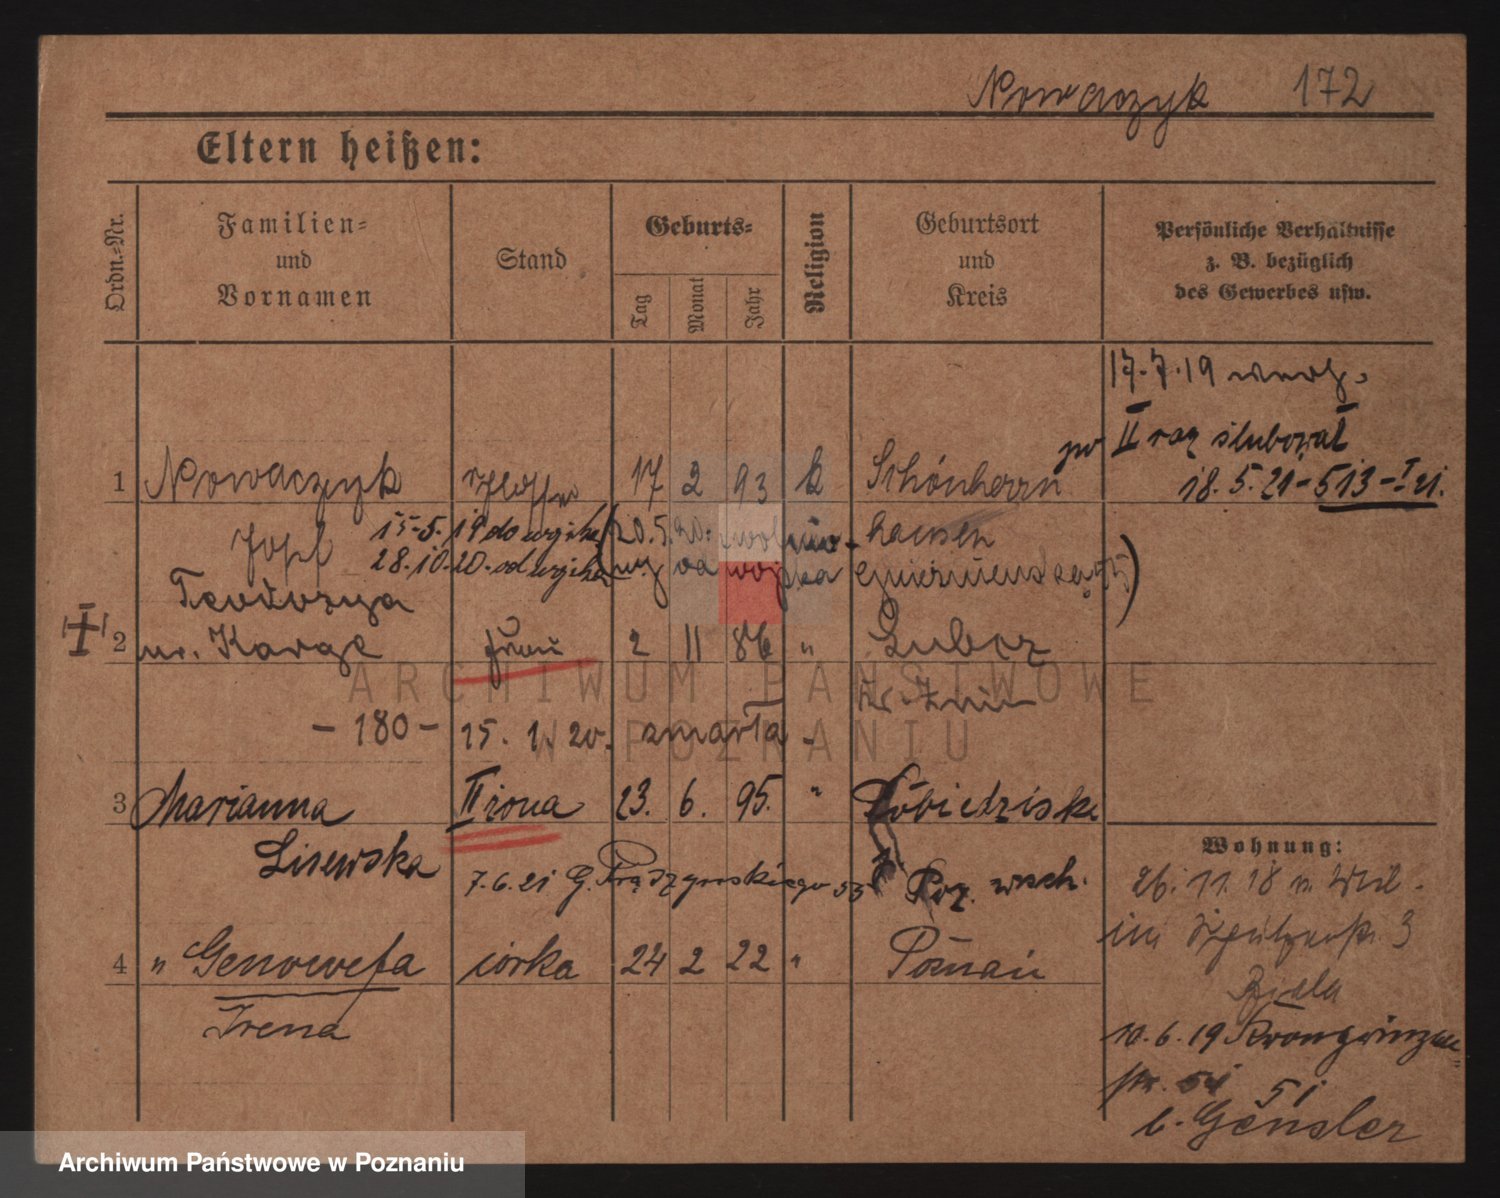 Nowaczyk 172
Eltern heißen:
Ordn.-Nr.
Familien-
und
Vornamen
Stand
Geburts-
Tag
Monat
Jahr
Religion
Geburtsort
und
Kreis
Persönliche Verhältnisse
z. B. bezüglich
des Gewerbes usw.
17.7.19
II raz ślubował
18.5.21-513-I 21.
1 Nowaczyk 17 2 93 k Schönherrn
Josef 15-5.19 do wojska (20.5.20. hausen
28.10.20. od wojska od wojska
Teodozya
I 2 ur. Karge Frau 2 11 86 " Lubcz
Kr. Znin
- 180 - 15. 1. 20. zmarła -
3 Marianna II żona 23. 6. 95. " Pobiedziska
Lisewska
7.6.21 G. Prądzyńskiego 53 Poz. wsch.
4 " Genowefa córka 24 2 22 " Poznań
Irena
Wohnung:
26.11.18
3
10.6.19 Kronprinzen-
str. 51
b. Gensler
ARCHIWUM PAŃSTWOWE
W POZNANIU
Archiwum Państwowe w Poznaniu